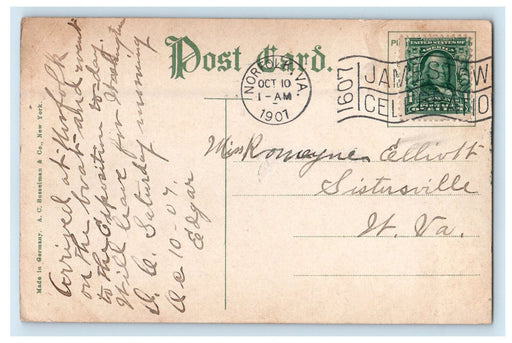 Post Card.
NORFOLK, VA.
OCT 10
1-AM
1907
1607
JAMESTOW
CEL
UNITED STATES OF AMERICA
Miss Romayne Elliott
Sistersville
W. Va.
Arrived at Norfolk
on the boat and went
to the Exposition to-day.
Will leave for Washington
D. C. Saturday morning
Oc 10-07.
Edgar
Made in Germany. A. C. Bosselman & Co., New York.